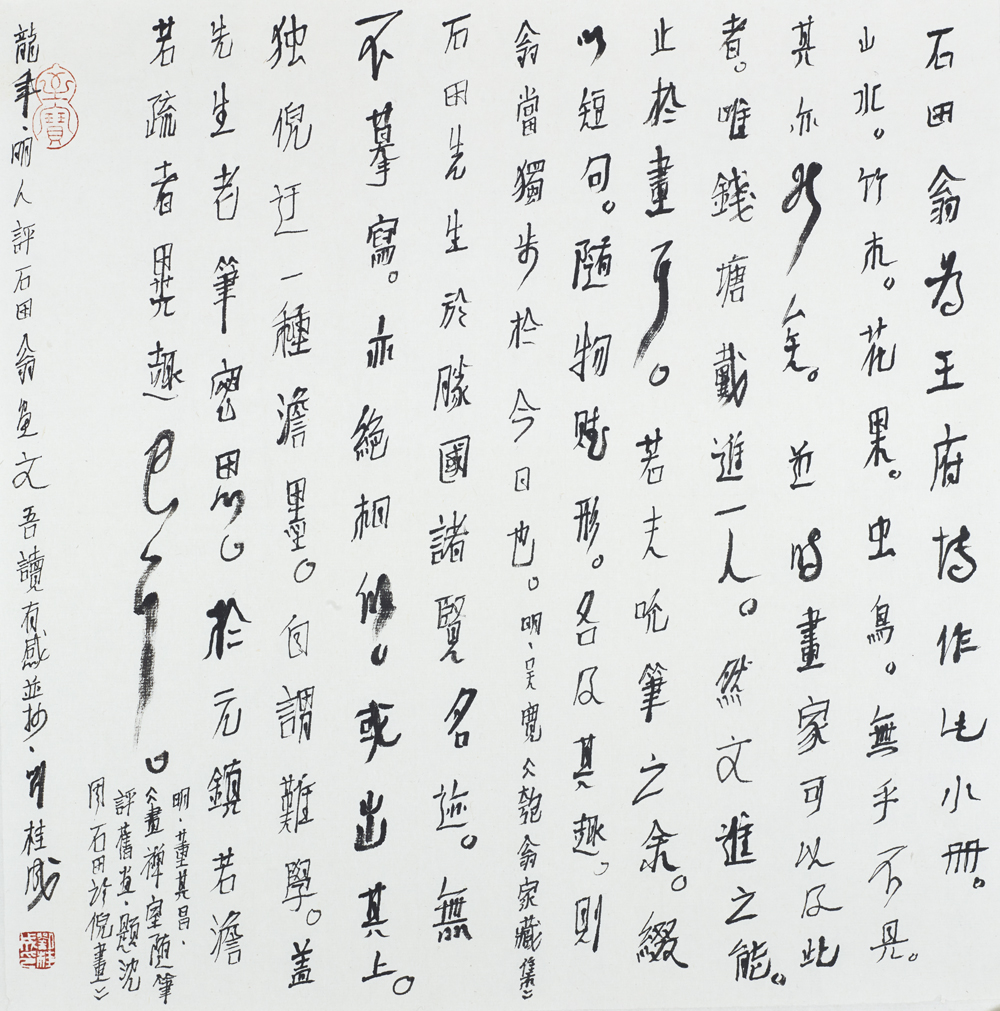 石田翁為王府博作此小冊。
山水。竹木。花果。虫鳥。無乎不具。
其亦能矣。近時畫家可以及此
者。唯錢塘戴進一人。然文進之能。
止於畫耳。若夫吮筆之余。綴
以短句。隨物賦形。各及其趣。則
翁當獨步於今日也。明、吳寬《匏翁家藏集》
石田先生於勝國諸賢名迹。無
不摹寫。亦絕相似。或出其上。
独倪迂一種澹墨。自謂難學。蓋
先生老筆密思。於元鎮若澹
若疏者異趣已耳。
明、董其昌、
《畫禪室随筆
評舊畫、題沈
周石田仿倪畫》
龍年、明人評石田翁畫文吾讀有感並抄、桂成
金寶